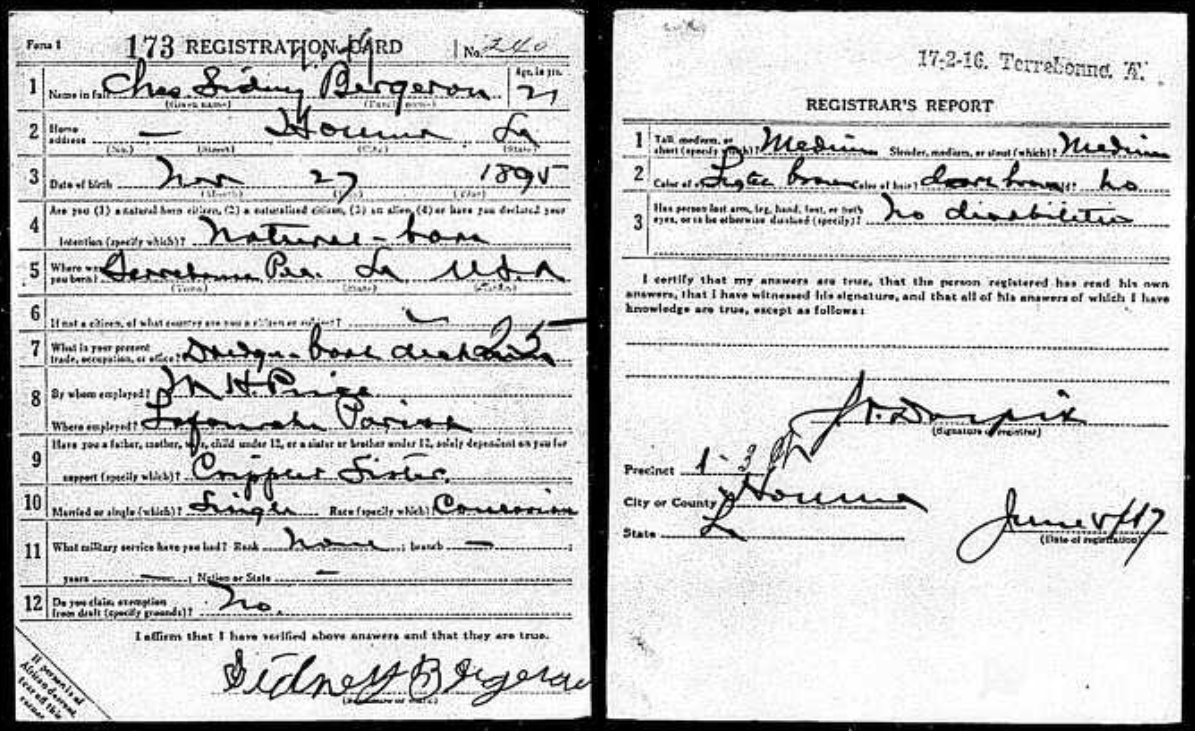 Form 1 173 REGISTRATION CARD No. 240
1 Name in full Chas Sidney Bergeron Age, in yrs. 21
(Given name) (Family name)
2 Home address — Houma La
(No.) (Street) (City) (State)
3 Date of birth Nov 27 1895
(Month) (Day) (Year)
4 Are you (1) a natural born citizen, (2) a naturalized citizen, (3) an alien, (4) or have you declared your
intention (specify which)? Natural-born
5 Where were you born? Terrebonne Par. La USA
(Town) (State) (Nation)
6 If not a citizen, of what country are you a citizen or subject? —
7 What is your present
trade, occupation, or office? Dredge-boat 25
8 By whom employed? H. Price
Where employed? Lafourche Parish
9 Have you a father, mother, wife, child under 12, or a sister or brother under 12, solely dependent on you for
support (specify which)? Crippled Sister.
10 Married or single (which)? Single Race (specify which)? Caucasian
11 What military service have you had? Rank none ; branch — ;
years — ; Nation or State —
12 Do you claim exemption
from draft (specify grounds)? No.
I affirm that I have verified above answers and that they are true.
Sidney Bergeron
(Signature or mark)
If person is of
African descent,
tear off this
corner
17-2-16. Terrebonne "A".
REGISTRAR'S REPORT
1 Tall, medium, or
short (specify which)? Medium Slender, medium, or stout (which)? Medium
2 Color of eyes? brown Color of hair? dark brown Bald? No
3 Has person lost arm, leg, hand, foot, or both
eyes, or is he otherwise disabled (specify)? No disabilities
I certify that my answers are true, that the person registered has read his own
answers, that I have witnessed his signature, and that all of his answers of which I have
knowledge are true, except as follows:
(Signature of registrar)
Precinct 1-3
City or County Houma
State La
June 5/17
(Date of registration)